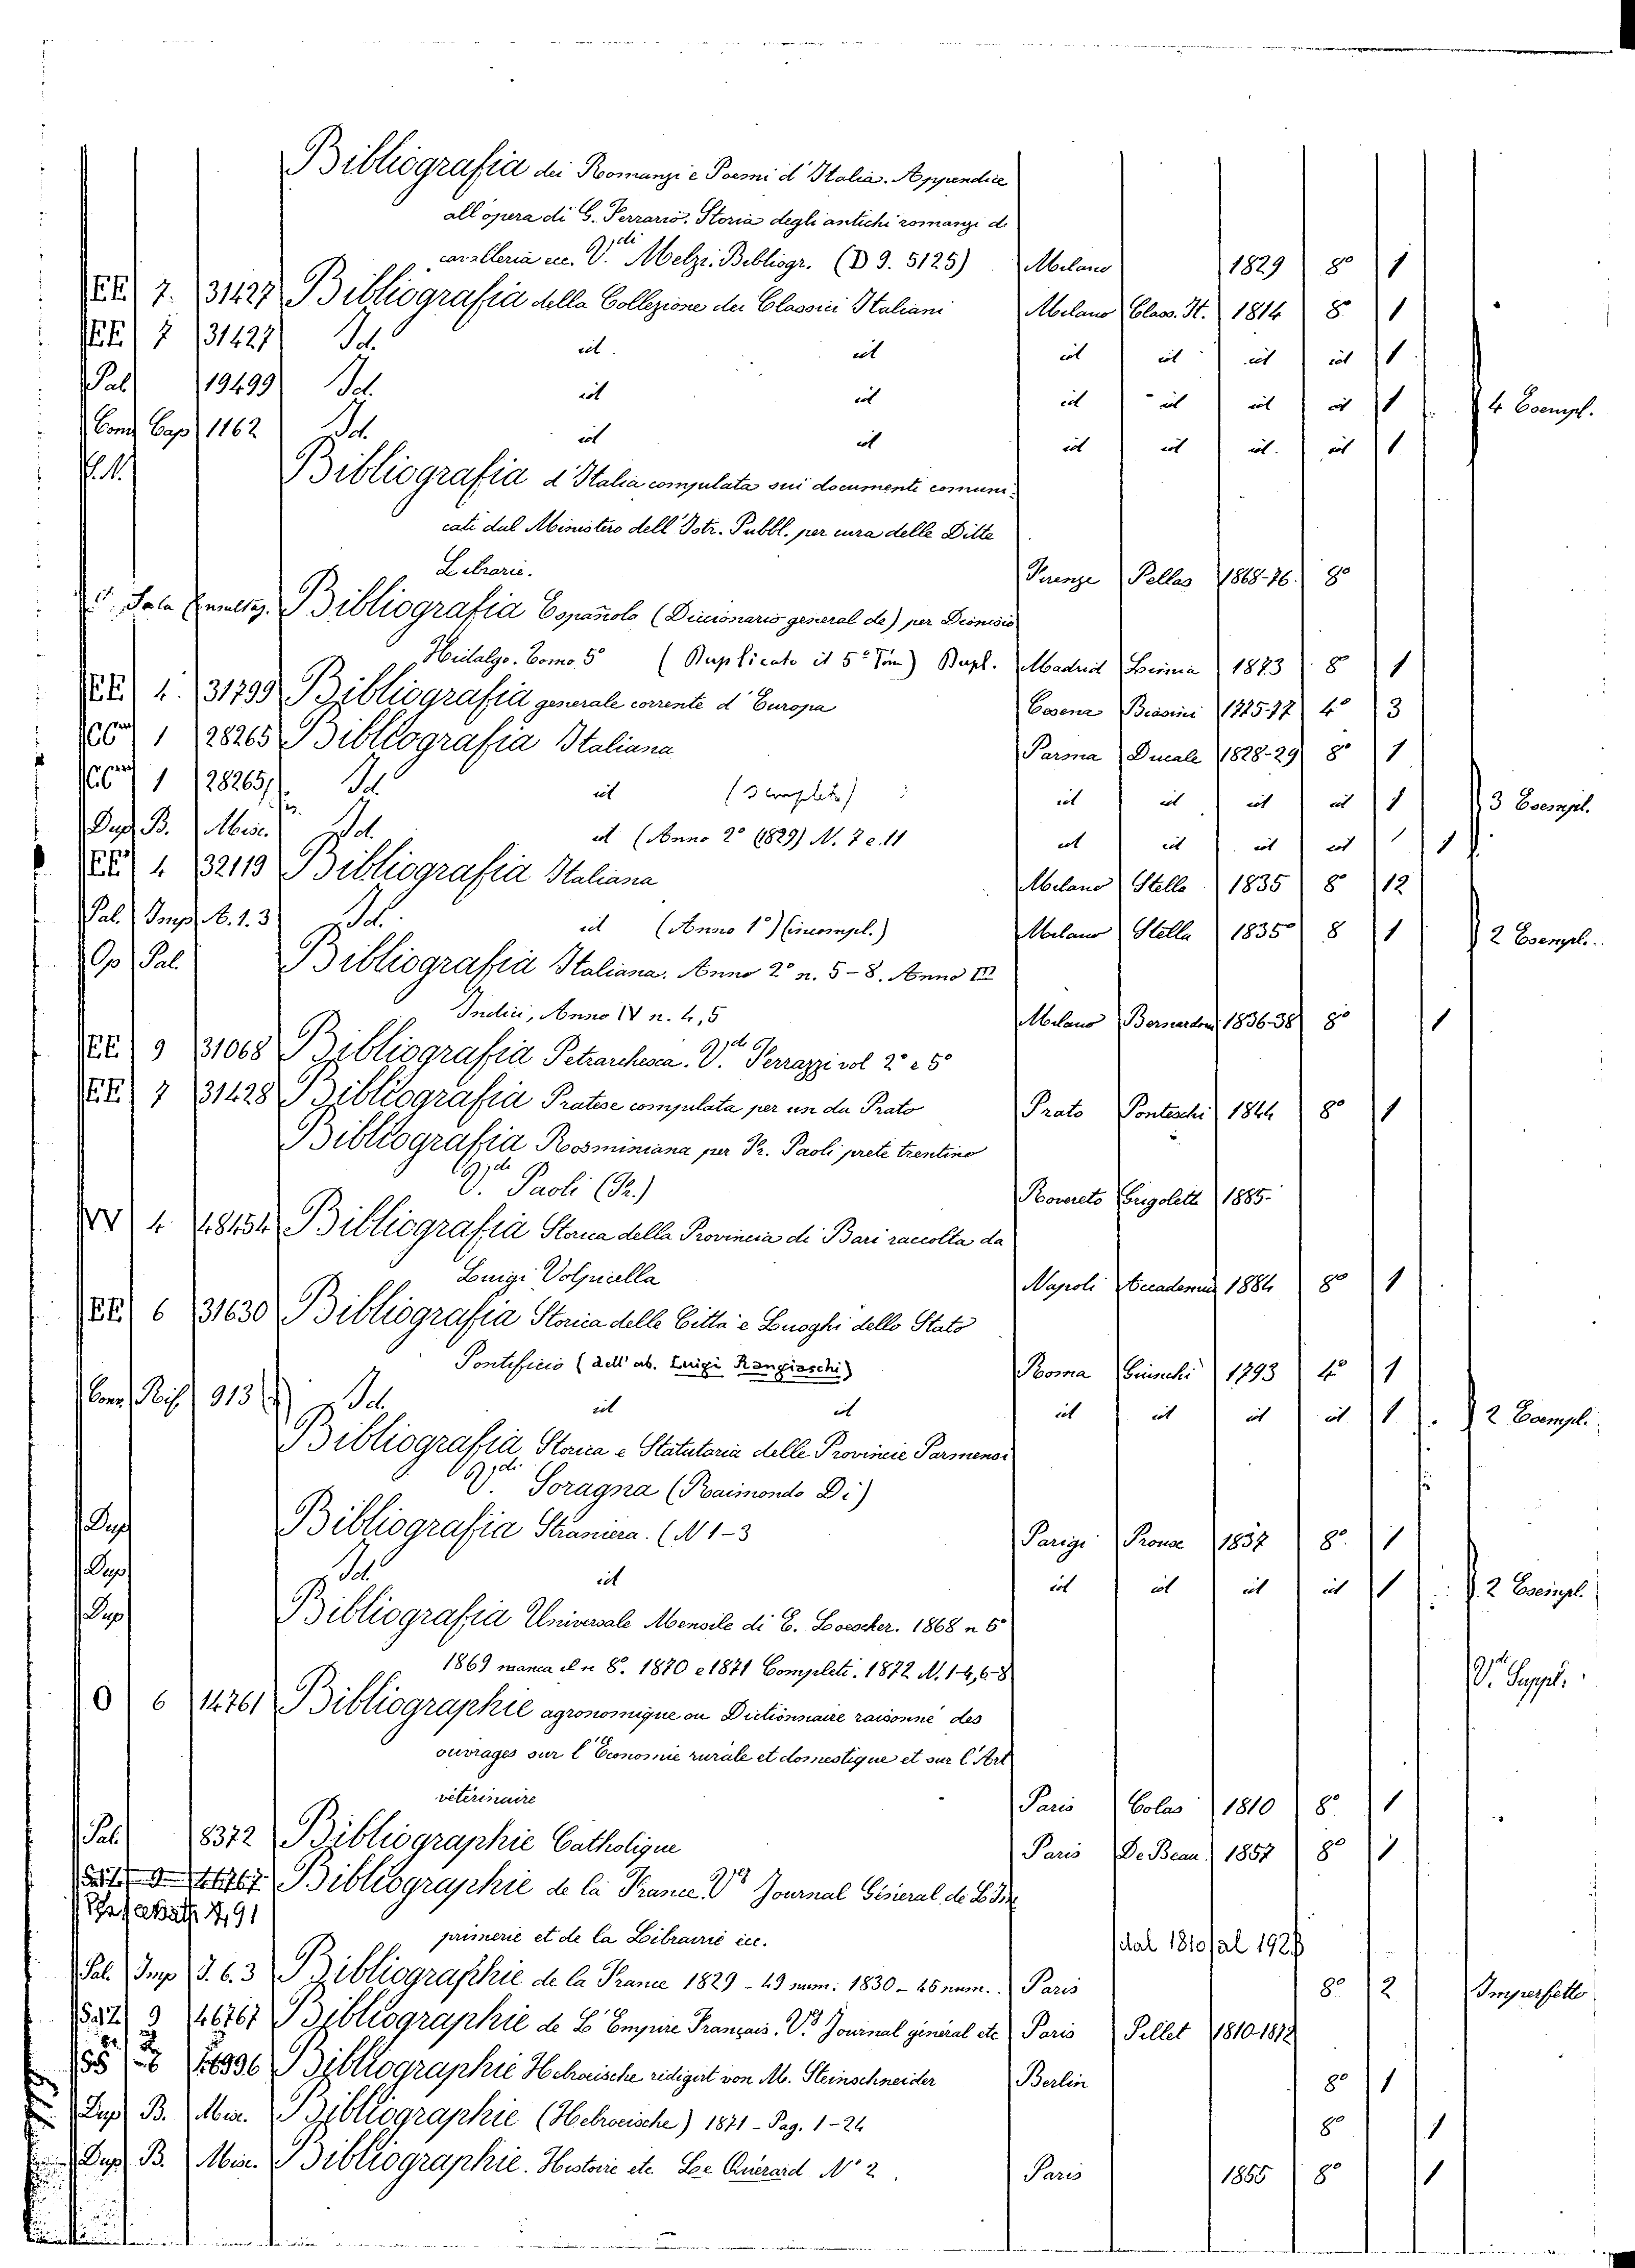 Bibliografia dei Romanzi e Poemi d'Italia. Appendice
all'opera di G. Ferrario. Storia degli antichi romanzi d
cavalleria ecc. V.di Melzi. Bibliogr. (D 9. 5125) Milano 1829 8° 1
EE 7. 31427 Bibliografia della Collezione dei Classici Italiani Milano Class. It. 1814 8° 1
EE 7 31427 Id. id id id id id id 1
Pal 19499 Id. id id id id id id 1 4 Esempl.
Conv Cap 1162 Id. id id id id id id 1
Bibliografia d'Italia compilata sui documenti comuni-
cati dal Ministero dell'Istr. Pubbl. per cura delle Ditte
Librarie. Firenze Pellas 1868-76. 8°
Sala Bibliografia Española (Diccionario general de) per Dionisio
Hidalgo. Tomo 5° (Duplicato il 5° Tom) Dupl. Madrid 1873 8° 1
EE 4. 31799 Bibliografia generale corrente d'Europa Cesena Biasini 4° 3
1 28265 Bibliografia Italiana Parma Ducale 1828-29 8° 1
1 28265 Id. id id id id id 1 3 Esempl.
Dup B. Misc. Id. id (Anno 2° (1829) N. 7 e 11 id id id id 1
EE 4 32119 Bibliografia Italiana Milano Stella 1835 8° 12
Pal. Imp. A. 1. 3 Id. id (Anno 1°) (incompl.) Milano Stella 1835 8 1 2 Esempl.
Op Pal. Bibliografia Italiana. Anno 2° n. 5-8. Anno III
Indici, Anno IV n. 4,5 Milano Bernardoni 1836-38 8° 1
EE 9 31068 Bibliografia Petrarchesca. V.di Ferrazzi vol 2° e 5°
EE 7 31428 Bibliografia Pratese compilata per un da Prato Prato Pontecchi 1844 8° 1
Bibliografia Rosminiana per Fr. Paoli prete trentino
V.di Paoli (Fr.) Rovereto Grigoletti 1885.
VV 4 48454 Bibliografia Storica della Provincia di Bari raccolta da
Luigi Volpicella Napoli Accademia 1884 8° 1
EE 6 31630 Bibliografia Storica delle Città e Luoghi dello Stato
Pontificio (dell'ab. Luigi Rangiaschi) Roma Giunchi 1793 4° 1
Conv Rif. 913 Id. id id id id id id 1 2 Esempl.
Bibliografia Storica e Statutaria delle Provincie Parmensi
V.di Soragna (Raimondo Di)
Dup Bibliografia Straniera. (N 1-3 Parigi Prouse 1837 8° 1
Dup Id. id id id id id 1 2 Esempl.
Dup Bibliografia Universale Mensile di E. Loescher. 1868 n 5°
1869 manca il n 8. 1870 e 1871 Completi. 1872 N. 1-4,6-8 V.di Suppl.
O 6 14761 Bibliographie agronomique ou Dictionnaire raisonné des
ouvrages sur l'Economie rurale et domestique et sur l'Art
véterinaire Paris Colas 1810 8° 1
Pal. 8372 Bibliographie Catholique Paris De Beau. 1857 8° 1
Bibliographie de la France. V.di Journal Général de L'Im
primerie et de la Librairie ecc. dal 1810 al 192
Pal. Imp J. 6. 3 Bibliographie de la France 1829 - 49 num. 1830 - 46 num. Paris 8° 2 Imperfetto
9 46767 Bibliographie de L'Empire Français. V.di Journal général etc Paris Pillet 1810-1812
Bibliographie Hebraeische redigirt von M. Steinschneider Berlin 8° 1
Dup B. Mis. Bibliographie (Hebraeische) 1871 - Pag. 1-24 8° 1
Dup B. Mis. Bibliographie. Histoire etc. Le Quérard N° 2. Paris 1855 8° 1